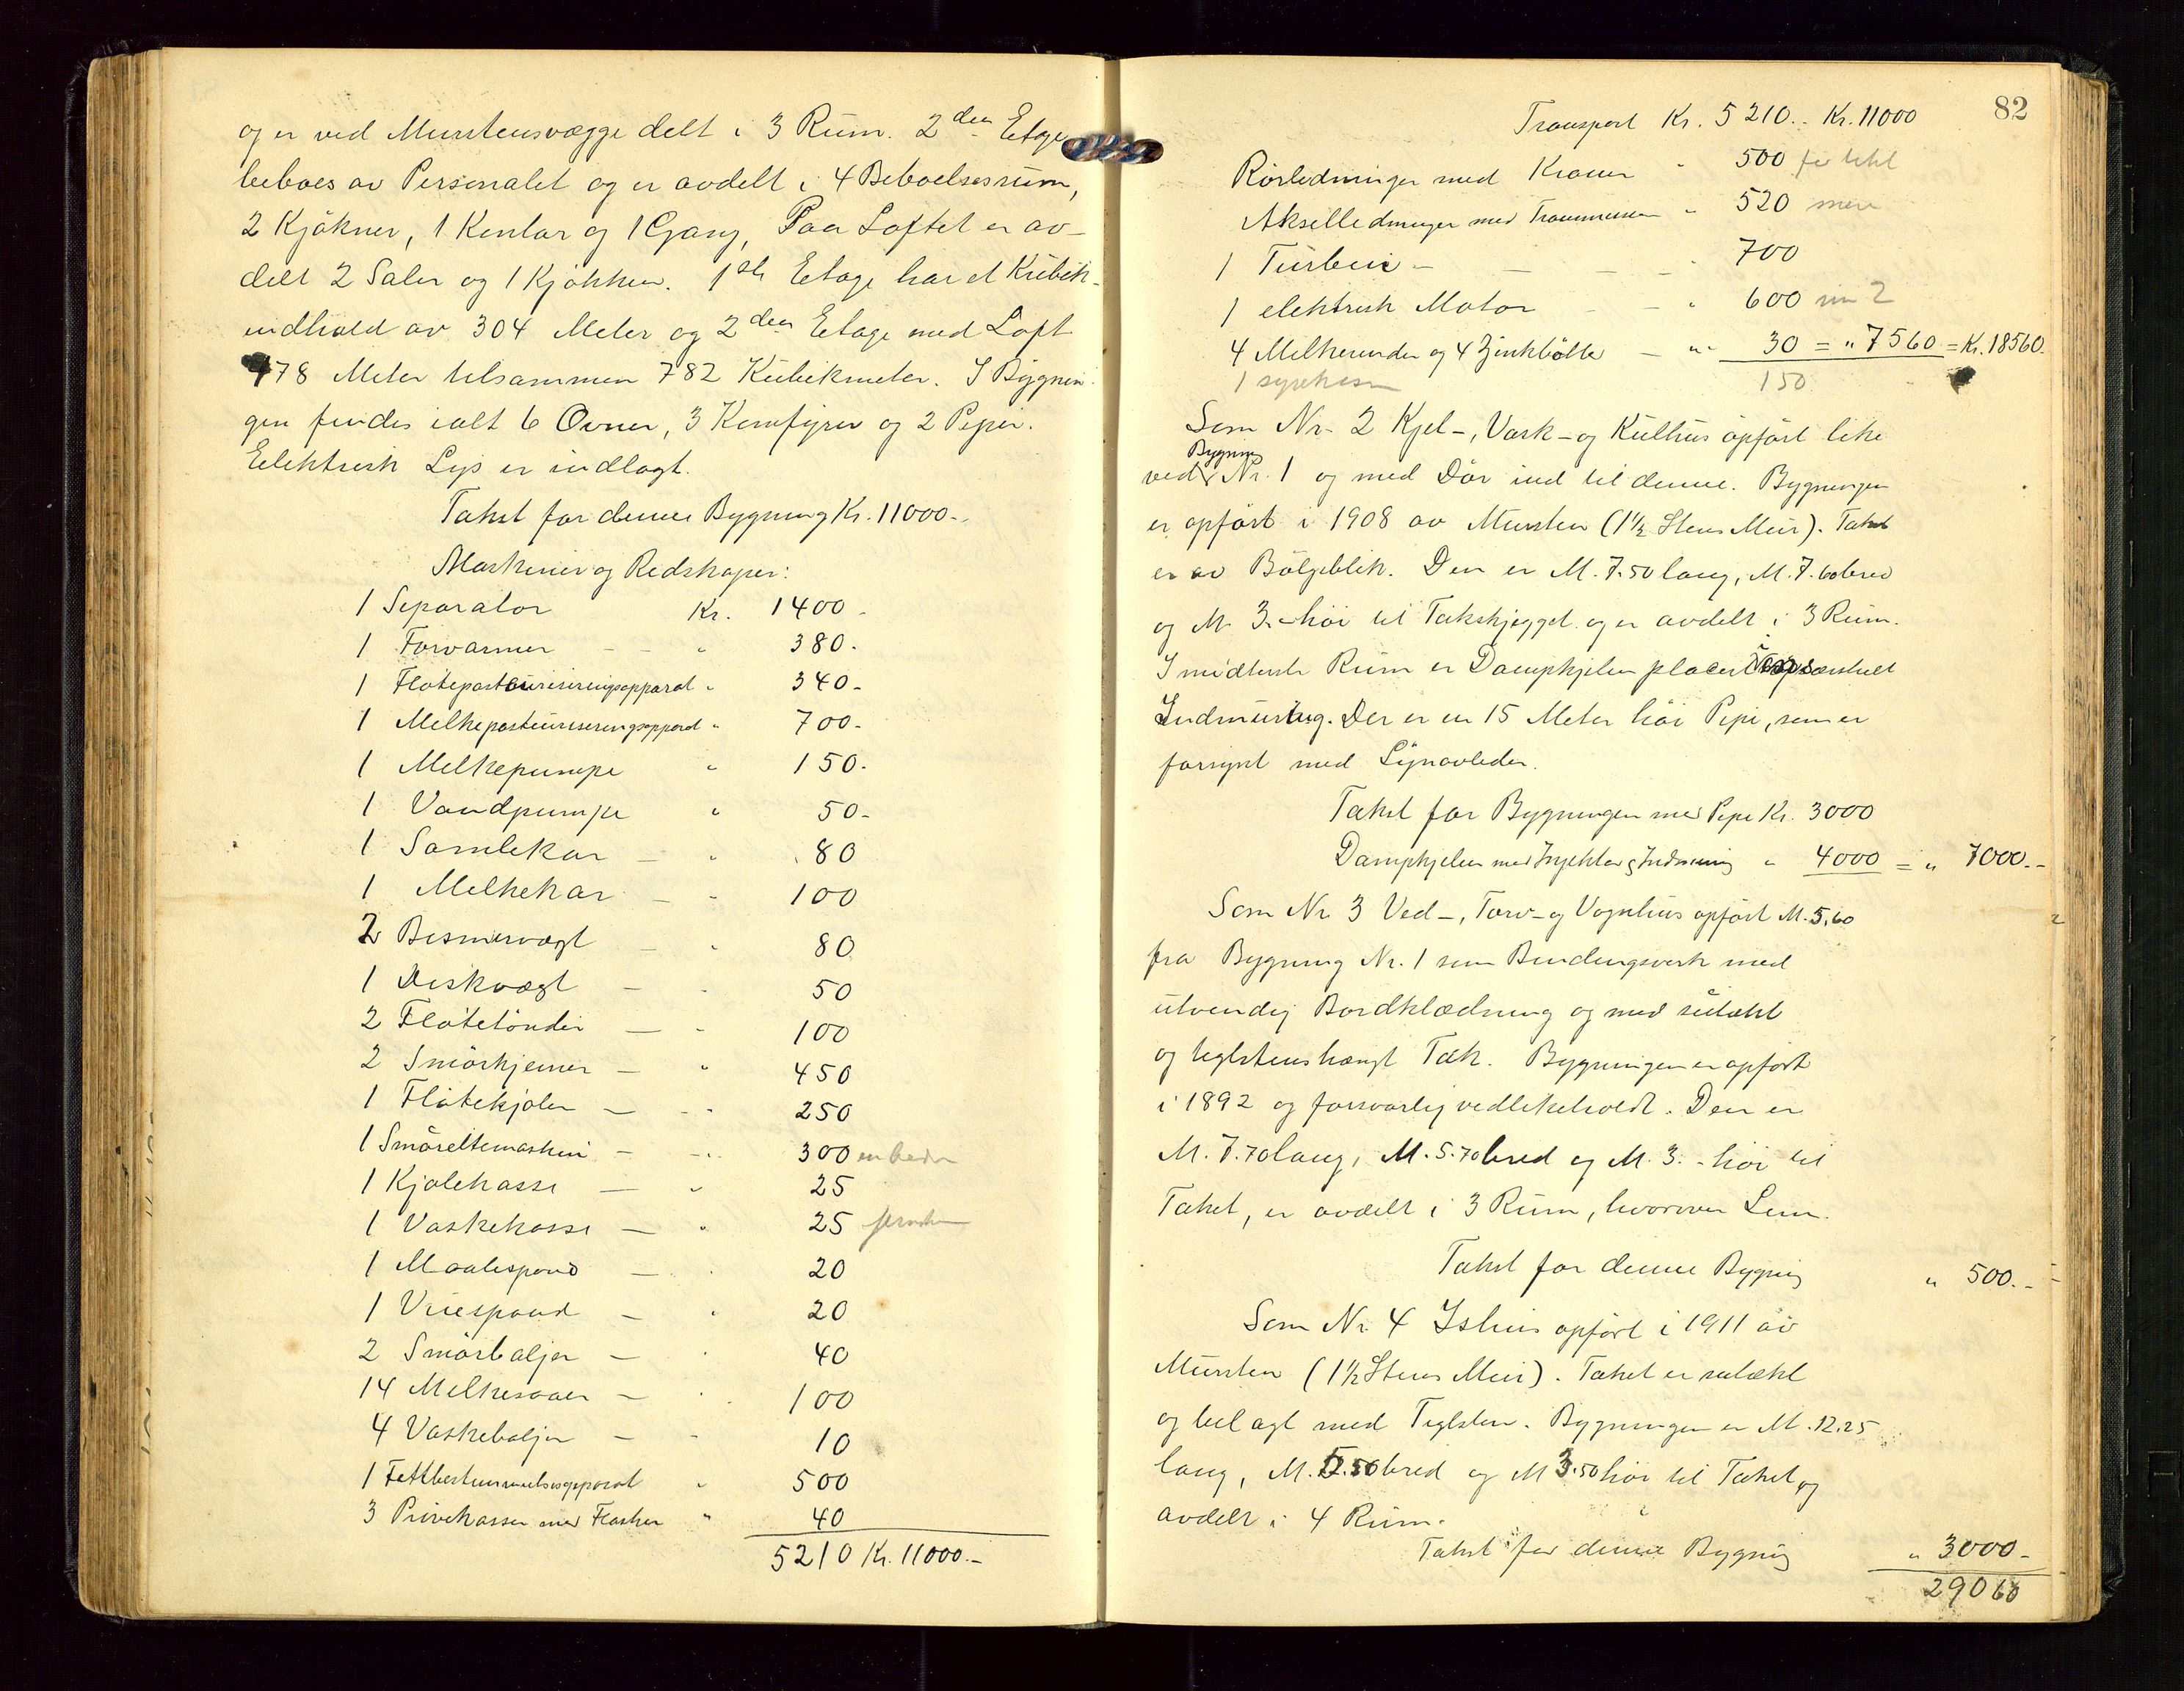 og er ved Murstensvægge delt i 3 Rum. 2den Etage
beboes av Personalet og er avdelt i 4 Beboelsesrum,
2 Kjökner, 1 Kontor og 1 Gang, Paa Loftet er av-
delt 2 Saler og 1 Kjökken. 1ste Etage har et Kubik-
indhold av 304 Meter og 2den Etage med Loft
478 Meter tilsammen 782 Kubikmeter. I Bygnin-
gen findes ialt 6 Ovner, 3 Komfyrer og 2 Peper.
Elektrisk Lys er indlagt.
Takst for denne Bygning Kr. 11000.-
Maskiner og Redskaper:
1 Separator Kr. 1400.-
1 Forvarmer - - " 380.-
1 Flötepasteuriseringsapparat " 340.-
1 Melkepasteuriseringsapparat " 700.-
1 Melkepumpe " 150.-
1 Vandpumpe " 50.-
1 Samlekar - " 80
1 Melkekar - " 100
2 Bismervægt - " 80
1 Diskvægt - " 50
2 Flötetönder - " 100
2 Smörkjerner - " 450
1 Flötekjöler - " 250
1 Smöreltemaskin - " 300 en bedre
1 Kjölekasse - " 25
1 Vaskekasse - " 25
1 Maalespand - " 20
1 Veiespand - " 20
2 Smörbaljer - " 40
14 Melkesaaer - " 100
4 Vaskebaljer - - 10
1 Fettbestemmelsesapparat " 500
3 Prövekasser med Flasker " 40
5210 Kr. 11000.-
82
Transport Kr. 5210.- Kr. 11000
Rörledninger med Kraner " 500
Akselledninger med Trommer " 520 mere
1 Turbin - - - " 700
1 elektrisk Motor - - " 600 nu 2
4 Melkespander og 4 Zinkbötter - " 30 = " 7560 = Kr. 18560.
1 syrekasse 150
Som Nr. 2 Kjel-, Vask- og Kulhus opfört like
Bygning
ved Nr. 1 og med Dör ind til denne. Bygningen
er opfört i 1908 av Mursten (1½ Stens Mur). Taket
er av Bölgeblik. Den er M. 7.50 lang, M. 7.60 bred
og M. 3.- höi til Takskjegget og er avdelt i 3 Rum.
I midterste Rum er Dampkjelen placert i forsvarlig
Indmuring. Der er en 15 Meter höi Pipe, som er
forsynt med Lynavleder.
Takst for Bygningen med Pipe Kr. 3000
Dampkjelen med Injektor og Indmuring " 4000 = " 7000.-
Som Nr. 3 Ved-, Torv- og Vognhus opfört M. 5,60
fra Bygning Nr. 1 som Bindingsverk med
utvendig Bordklædning og med sutækt
og teglstenshængt Tak. Bygningen er opfört
i 1892 og forsvarlig vedlikeholdt. Den er
M. 7.70 lang, M. 5.70 bred og M. 3.- höi til
Taket, er avdelt i 3 Rum, hvorover Lem.
Takst for denne Bygning " 500.-
Som Nr. 4 Ishus opfört i 1911 av
Mursten (1½ Stens Mur). Taket er sutækt
og belagt med Teglsten. Bygningen er M. 12.25
lang, M. 5.50 bred og M 3.50 höi til Taket og
avdelt i 4 Rum.
Takst for denne Bygning " 3000.-
29060